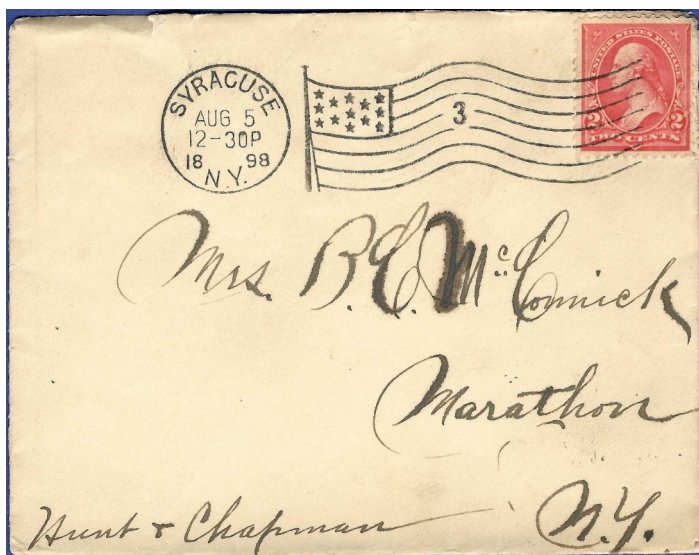 SYRACUSE
AUG 5
12-30P
18 98
N.Y.
3
UNITED STATES POSTAGE
2 TWO CENTS 2
Mrs. B. E. McCormick
Marathon
N.Y.
Hunt & Chapman